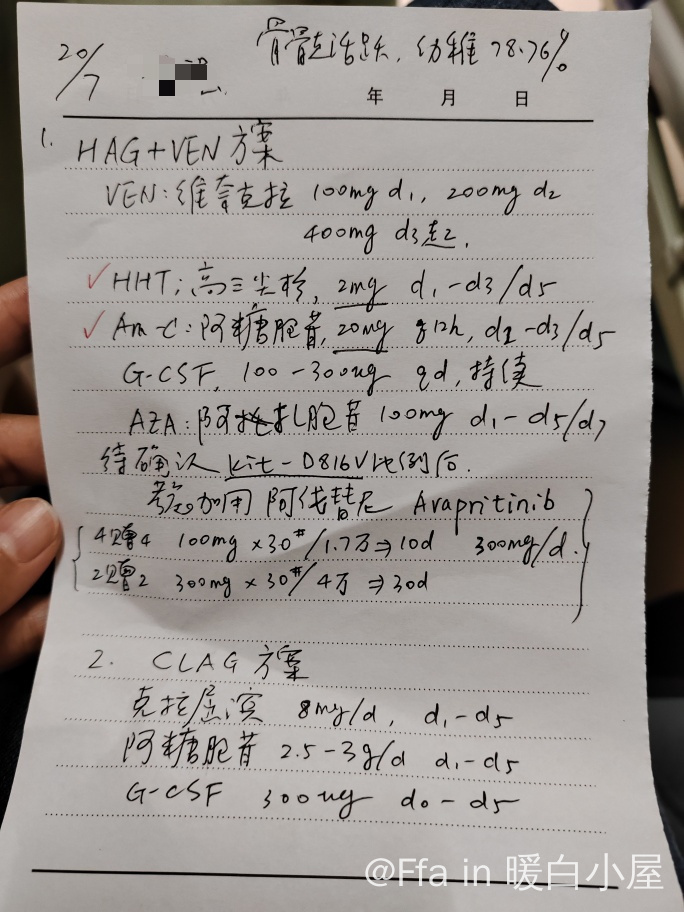 20/7
骨髓活跃, 幼稚 78.76%
年 月 日
1. HAG+VEN 方案
VEN: 维奈克拉 100mg d1, 200mg d2
400mg d3起.
✓HHT: 高三尖杉, 2mg d1-d3/d5
✓Ara-C: 阿糖胞苷, 20mg q12h, d1-d3/d5
G-CSF, 100-300ug qd, 持续
AZA: 阿扎胞苷 100mg d1-d5/d7
待确认 Kit-D816V 比例后.
考虑加用 阿伐替尼 Avapritinib
4赠4 100mg×30#/1.7万⇒10d 300mg/d.
2赠2 300mg×30#/4万 ⇒30d
2. CLAG 方案
克拉屈滨 8mg/d, d1-d5
阿糖胞苷 2.5-3g/d d1-d5
G-CSF 300ug d0-d5
@Ffa in 暖白小屋